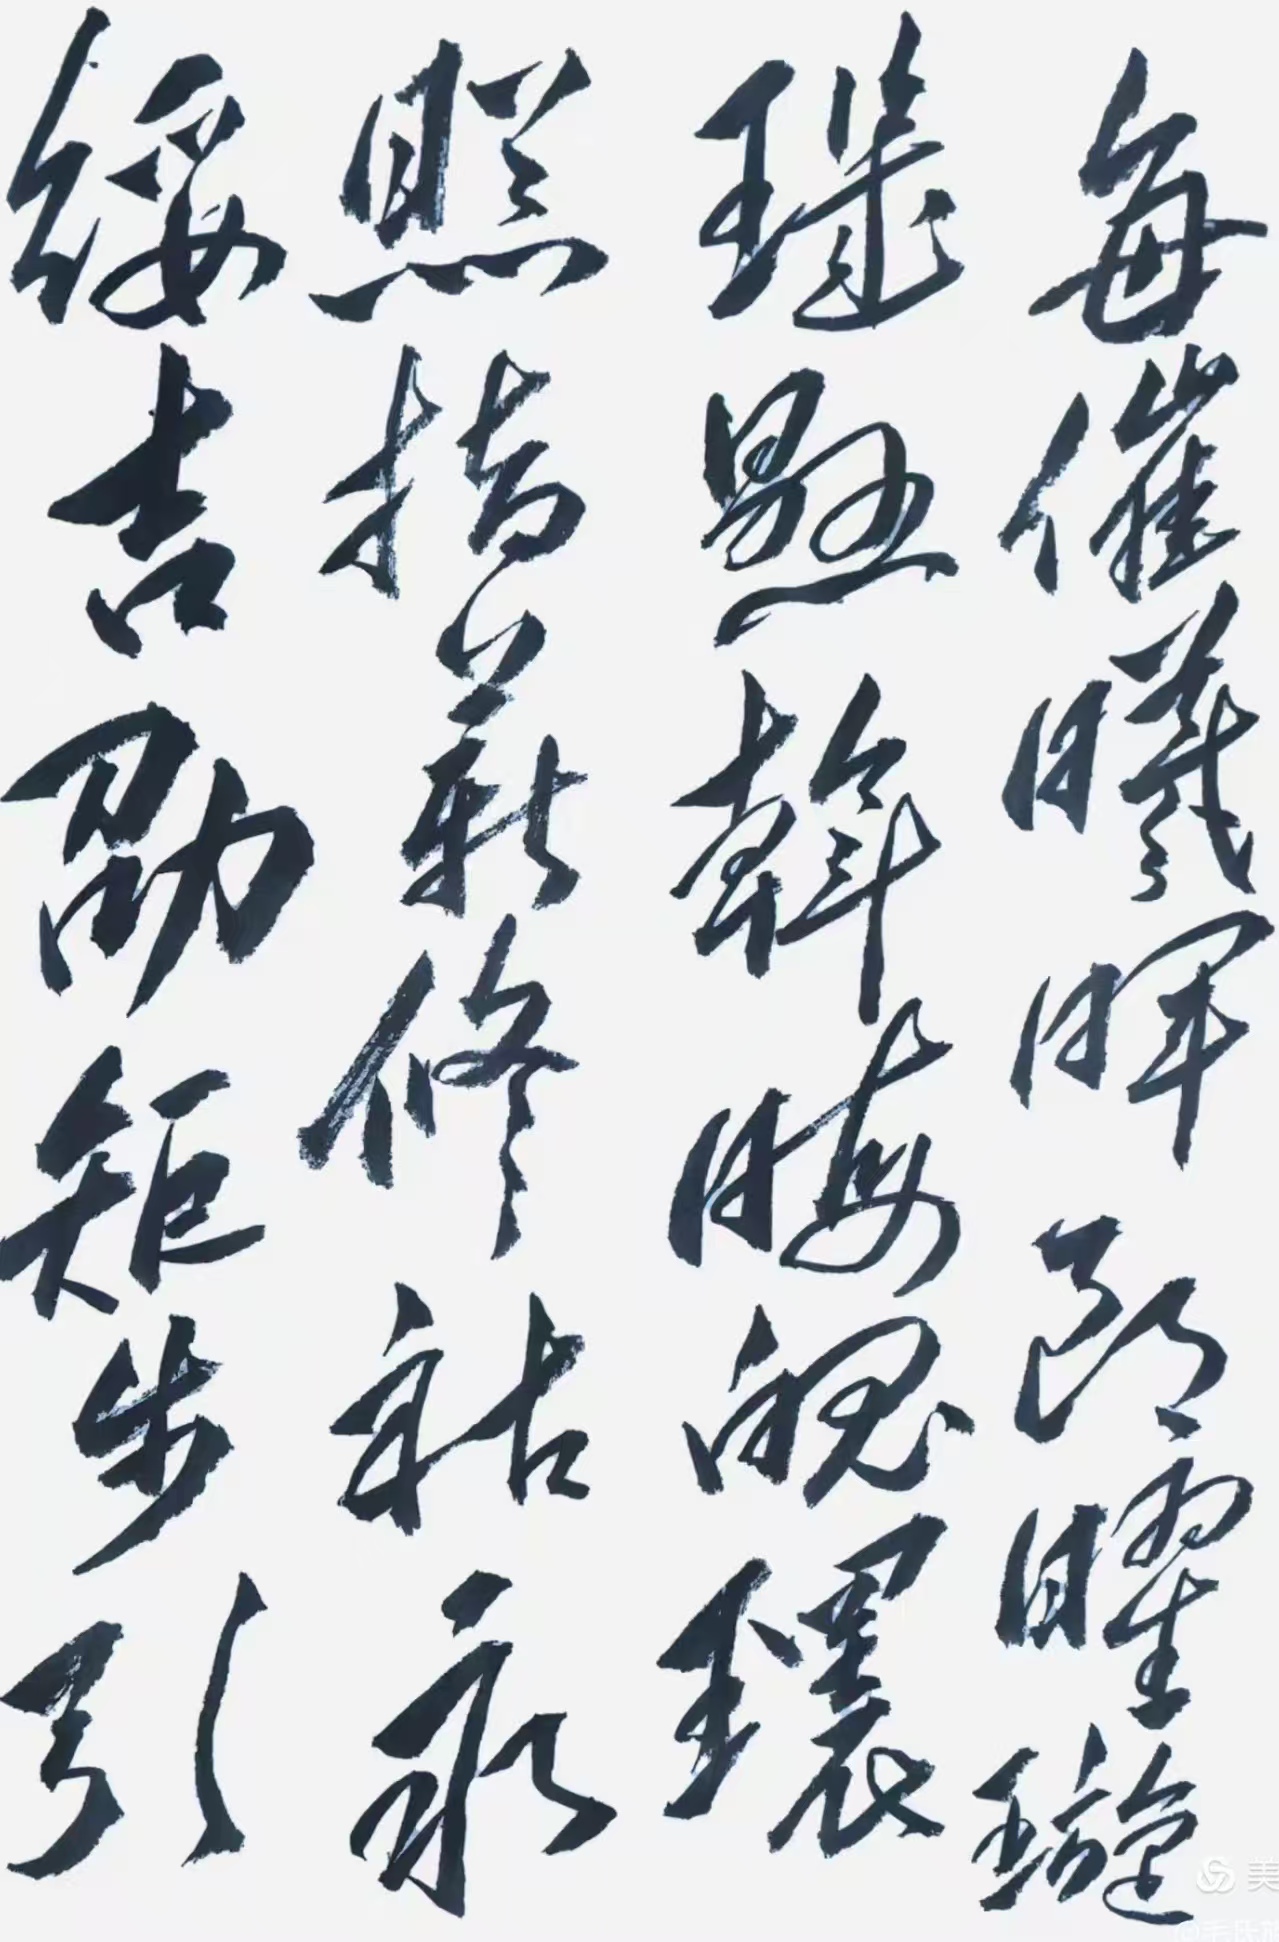 每催曦暉朗曜璇
璣懸斡晦魄環
照指薪修祜永
綏吉劭矩步引
美